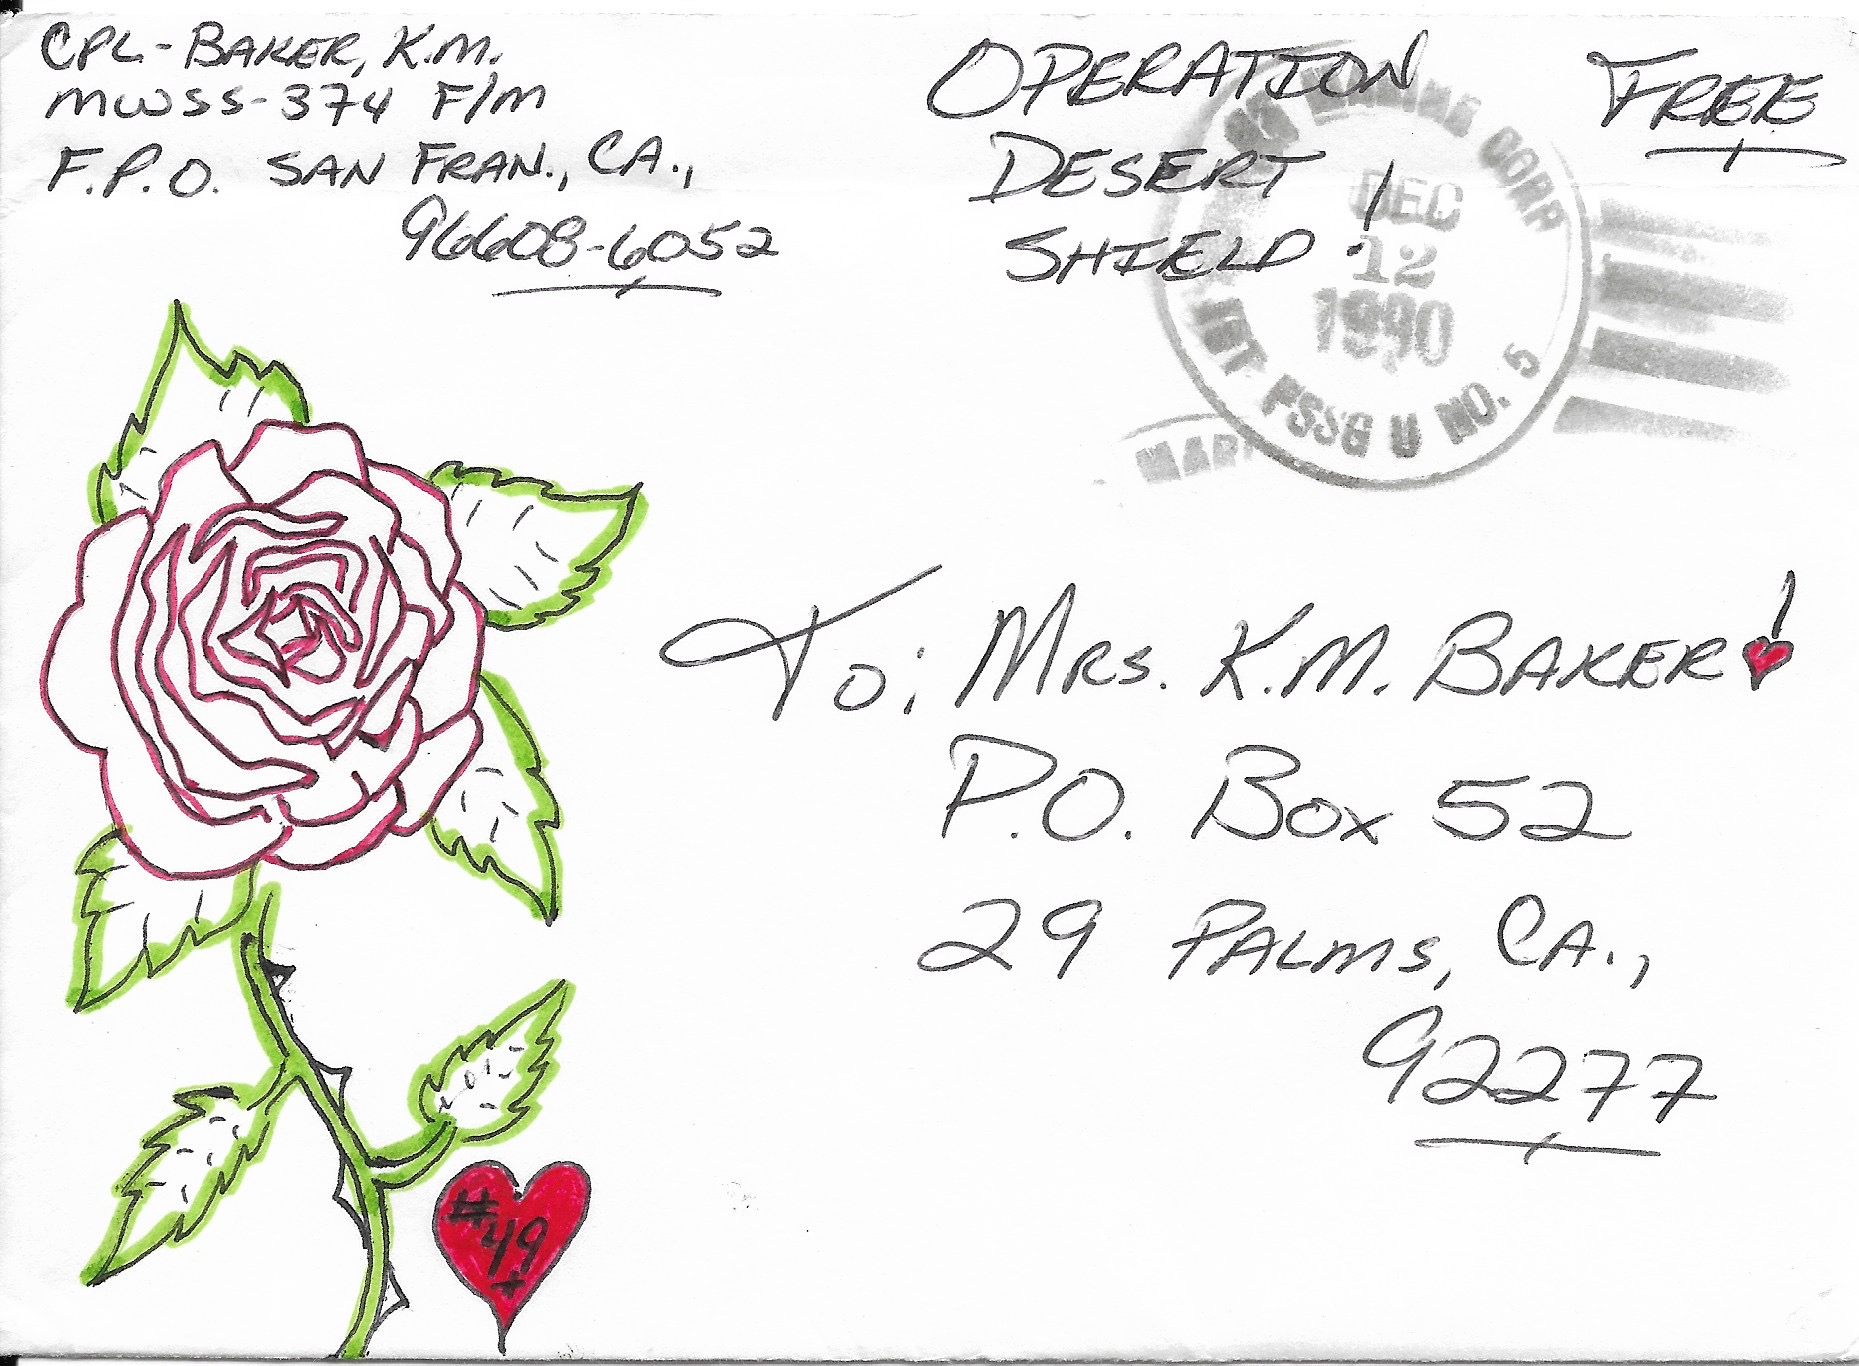 CPL-BAKER, K.M.
MWSS-374 F/M
F.P.O. SAN FRAN., CA.,
96608-6052
OPERATION
DESERT
SHIELD!
FREE
MARINE CORP
DEC
12
1990
1ST FSSG U NO. 5
To: MRS. K.M. BAKER!
P.O. BOX 52
29 PALMS, CA.,
92277
#49